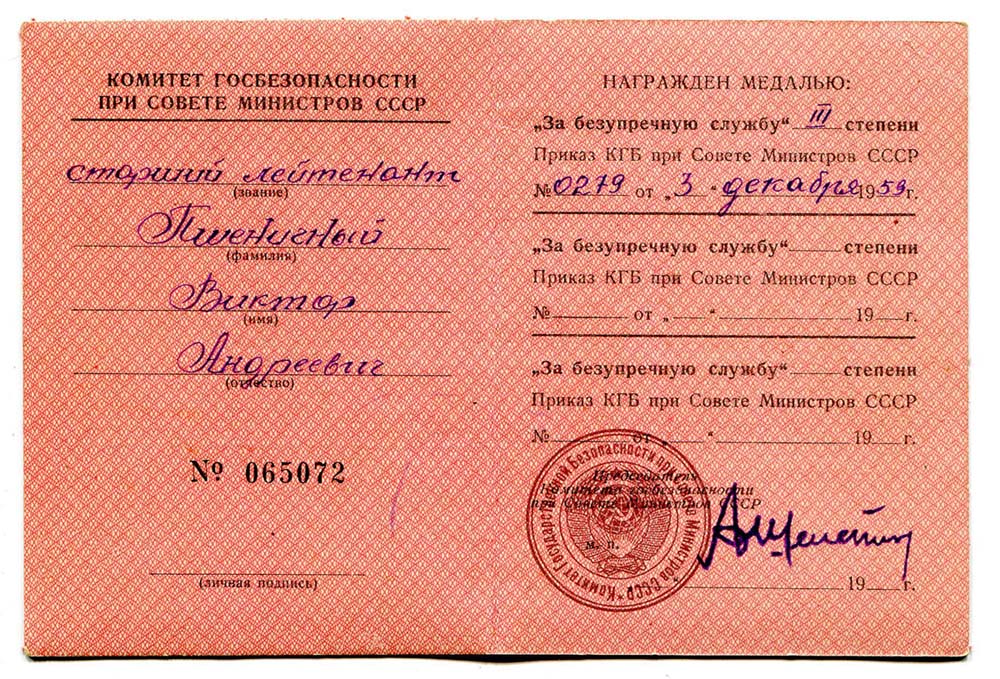 КОМИТЕТ ГОСБЕЗОПАСНОСТИ
ПРИ СОВЕТЕ МИНИСТРОВ СССР
старший лейтенант
(звание)
Пшеничный
(фамилия)
Виктор
(имя)
Андреевич
(отчество)
№ 065072
(личная подпись)
НАГРАЖДЕН МЕДАЛЬЮ:
„За безупречную службу“ III степени
Приказ КГБ при Совете Министров СССР
№ 0279 от „ 3 “ декабря 1959 г.
„За безупречную службу“ степени
Приказ КГБ при Совете Министров СССР
№ от „ “ 19 г.
„За безупречную службу“ степени
Приказ КГБ при Совете Министров СССР
№ от „ “ 19 г.
Председатель
Комитета госбезопасности
при Совете Министров СССР
А Шелепин
м. п.
19 г.
Комитет Государственной Безопасности при Совете Министров СССР